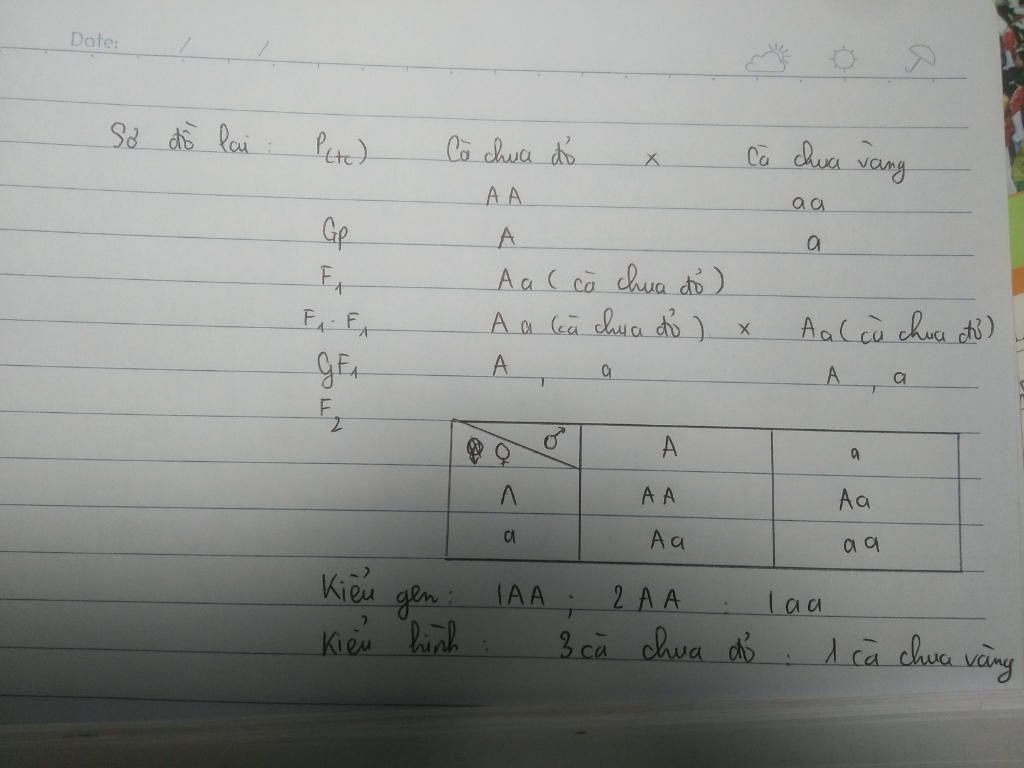 Date: / /
Sơ đồ lai : P(tc) Cà chua đỏ x Cà chua vàng
AA aa
Gp A a
F1 Aa ( cà chua đỏ )
F1 . F1 Aa (cà chua đỏ) x Aa ( cà chua đỏ )
GF1 A , a A , a
F2
♀ ♂ A a
A AA Aa
a Aa aa
Kiểu gen : 1AA ; 2 AA : 1aa
Kiểu hình : 3 cà chua đỏ : 1 cà chua vàng